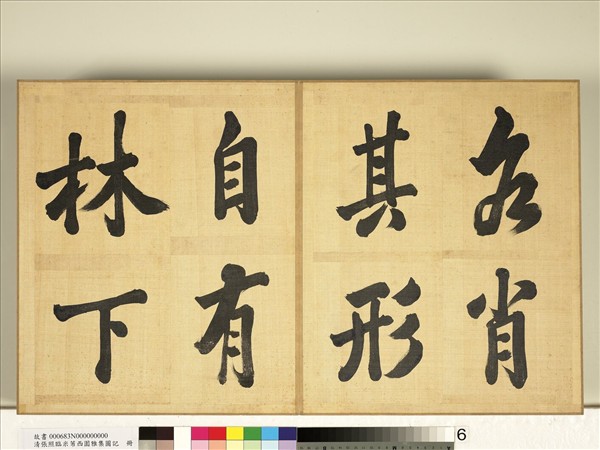 各肖
其形
自有
林下
故書 000683N000000000
清張照臨米芾西園雅集圖記　冊
6